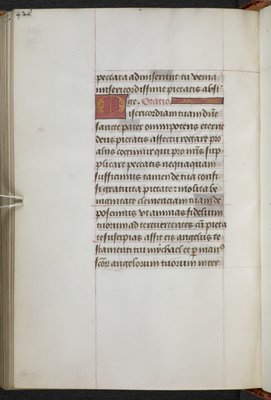 peccata admiserunt tu venia
misericordissime pietatis abste
ge. Oratio
Misericordiam tuam dñe
sancte pater omnipotens eterne
deus pietatis affectu rogare pro
aliis cogimur qui pro nr̃is sup
plicare peccatis nequaquam
sufficimus tamen de tua confi
si gratuita pietate et insolita be
nignitate clementiam tuam de
poscimus ut animas fidelium
tuorum ad te revertentes cũ pieta
te suscipias assit eis angelus te
stamenti tui mychael et p man
sc̃or angelorum tuorum inter